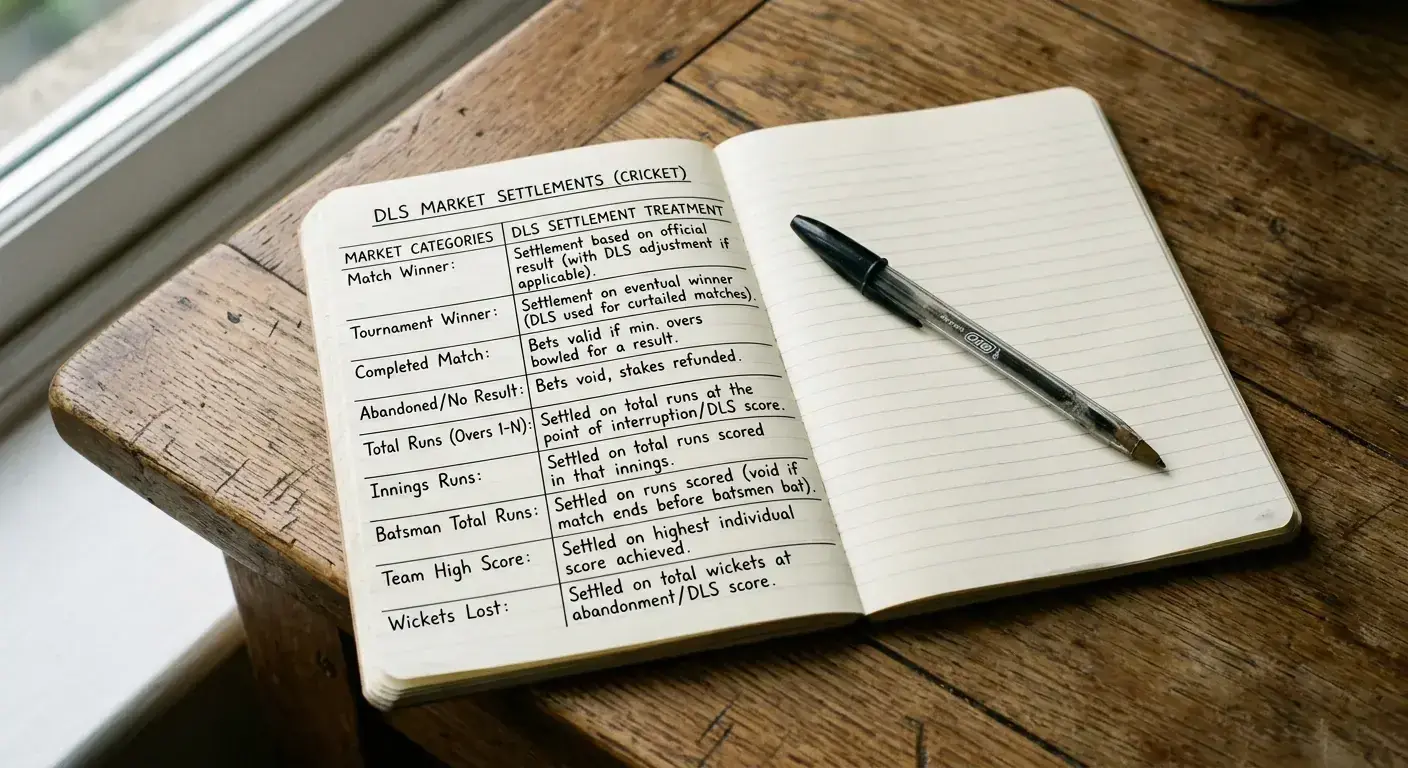 DLS MARKET SETTLEMENTS (CRICKET)
MARKET CATEGORIES DLS SETTLEMENT TREATMENT
Match Winner: Settlement based on official
result (with DLS adjustment if
applicable).
Tournament Winner: Settlement on eventual winner
(DLS used for curtailed matches).
Completed Match: Bets valid if min. overs
bowled for a result.
Abandoned/No Result: Bets void, stakes refunded.
Total Runs (Overs 1-N): Settled on total runs at the
point of interruption/DLS score.
Innings Runs: Settled on total runs scored
in that innings.
Batsman Total Runs: Settled on runs scored (void if
match ends before batsmen bat).
Team High Score: Settled on highest individual
score achieved.
Wickets Lost: Settled on total wickets at
abandonment/DLS score.